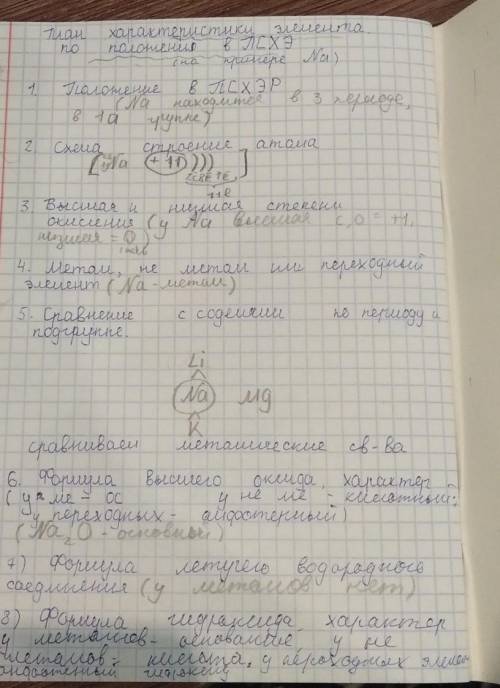 План характеристики элемента
по положению в ПСХЭ
(на примере Na)
1. Положение в ПСХЭР
(Na находится в 3 периоде,
в 1а группе)
2. Схема строение атома
Na +11 )))
2е 8е 1е
11е
3. Высшая и низшая степени
окисления (у Na высшая с,о = +1,
низшая = 0)
4. Метал, не метал или переходный
элемент (Na - метал)
5. Сравнение с соседними по периоду и
подгруппе.
Li
Na Mg
K
сравниваем металические св-ва
6. Формула высшего оксида, характер
(у ме = ос у не ме - кислотный;
у переходных - амфотерный)
(Na2O - основный)
7) Формула летучего водородного
соединения (у металов нет)
8) Формула гидроксида, характер
у металов - основание у не
металов - кислота, у переходных элемен
амфотерный гидроксид